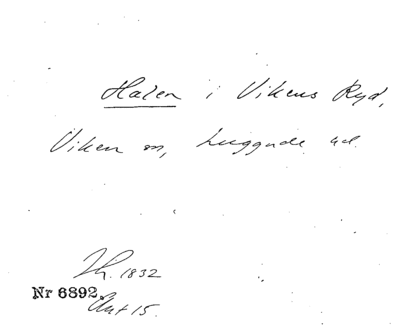 Halen i Vikens Ryd,
Viken sn, Luggude hd.
Th. 1832
Nr 6892.
Ant 15.